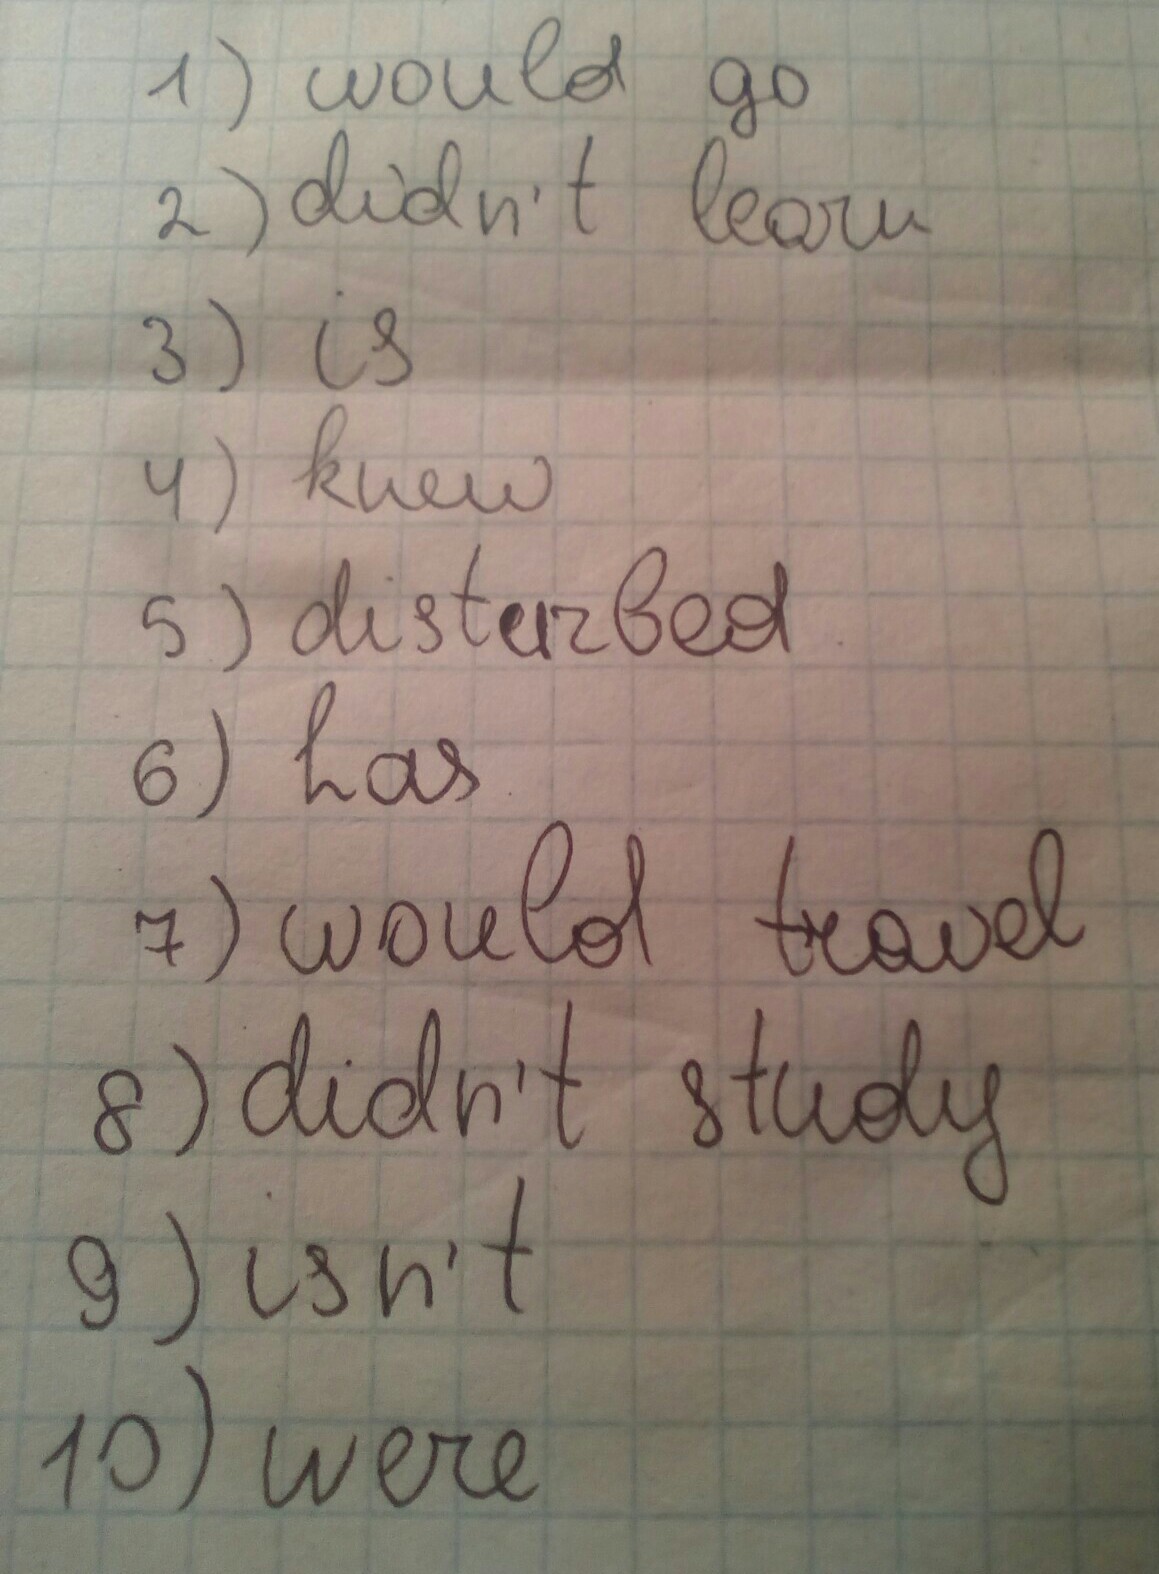 1) would go
2) didn't learn
3) is
4) knew
5) disturbed
6) has
7) would travel
8) didn't study
9) isn't
10) were